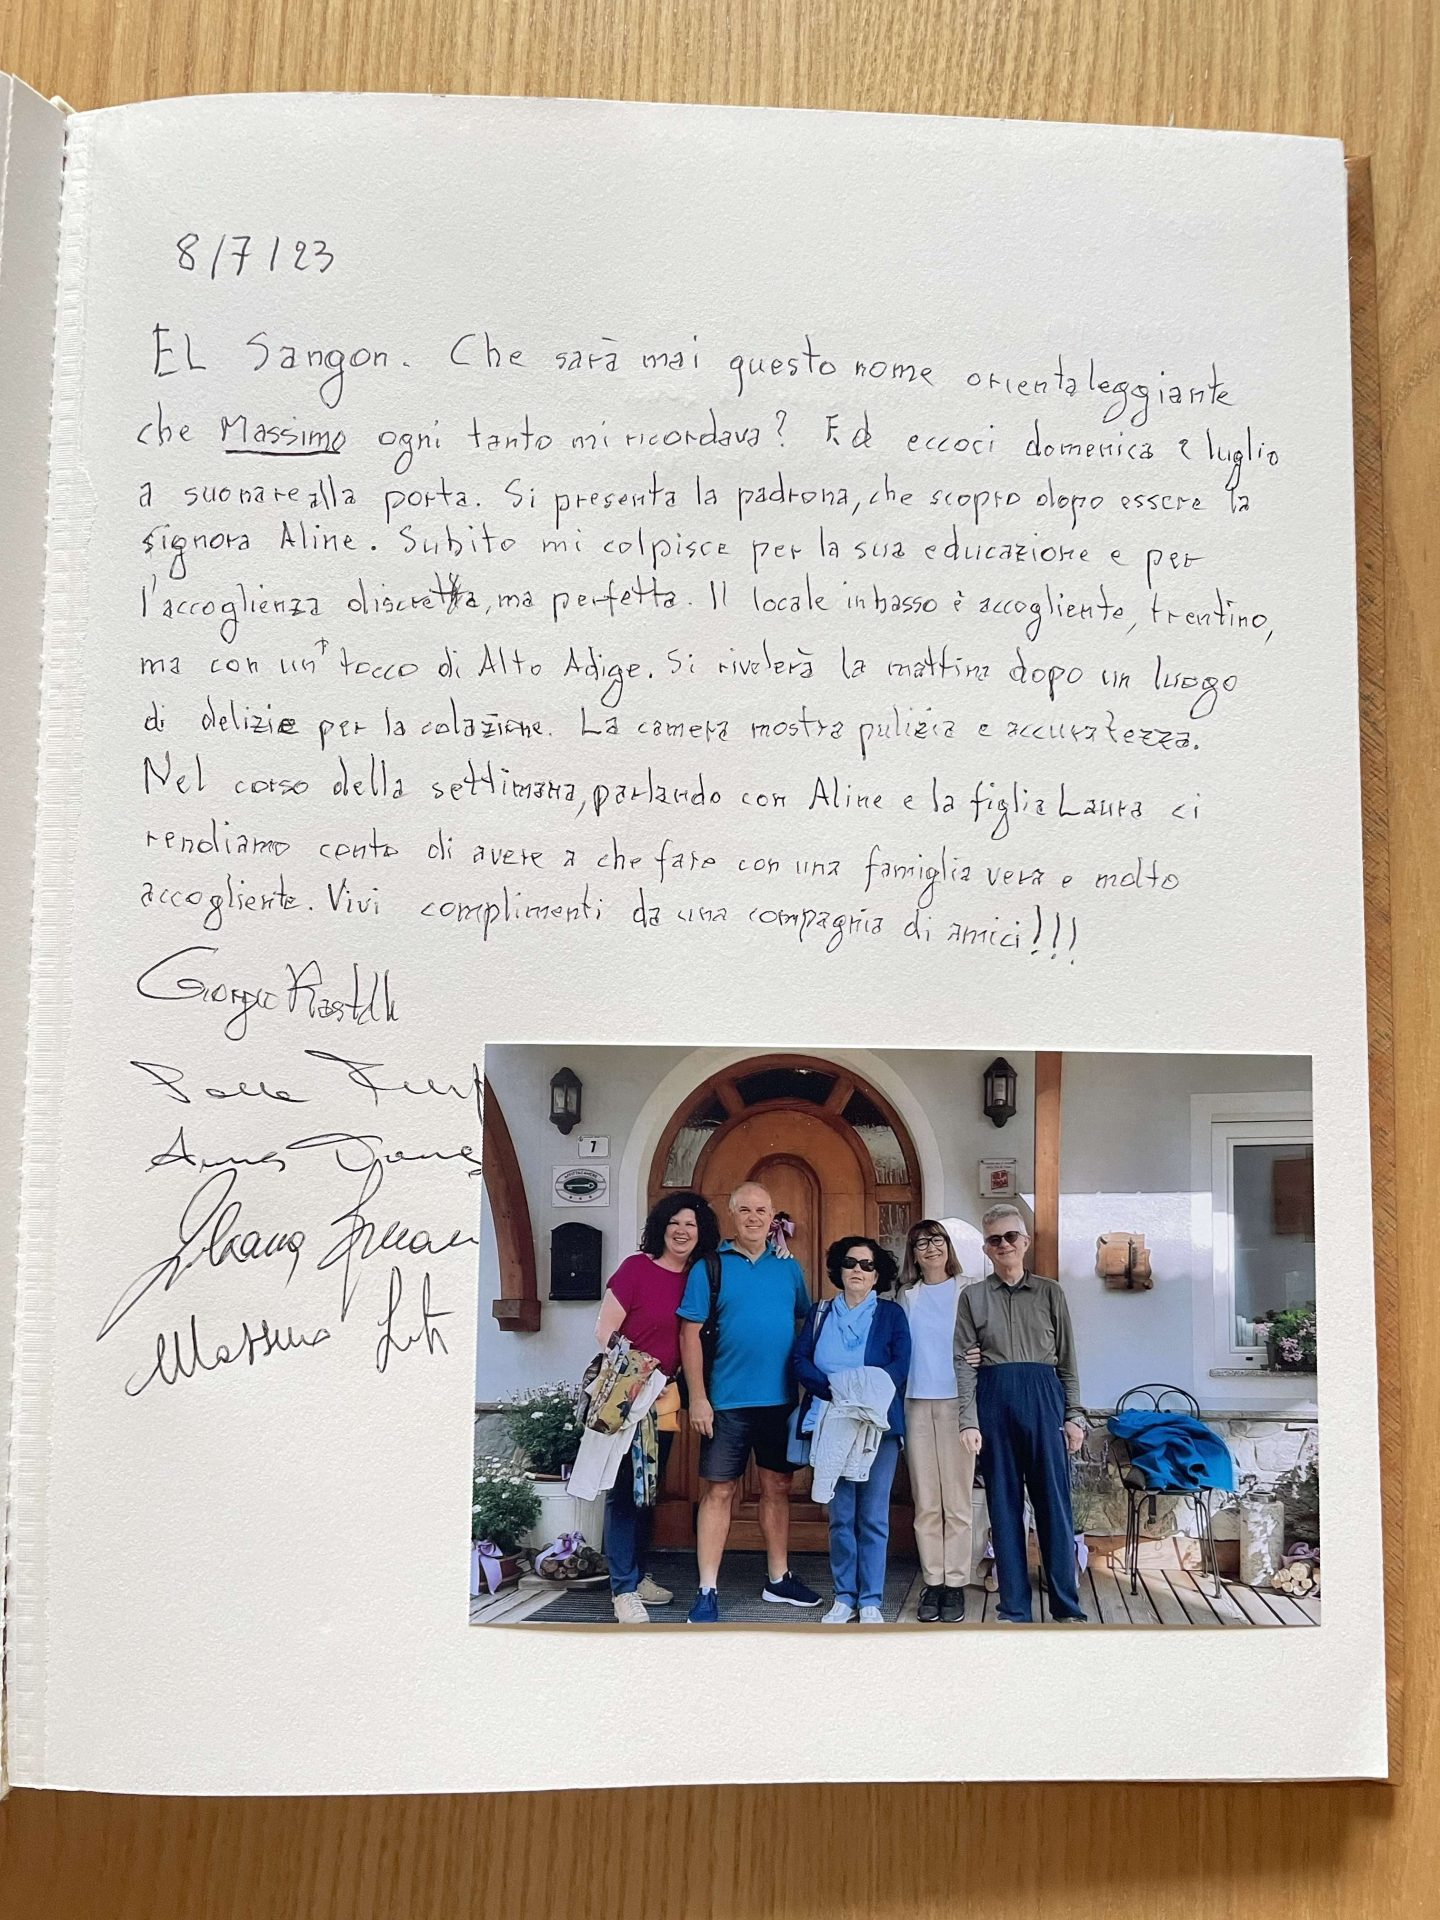 8/7/23
EL Sangon. Che sarà mai questo nome orientaleggiante
che Massimo ogni tanto mi ricordava? Ed eccoci domenica 2 luglio
a suonare alla porta. Si presenta la padrona, che scopro dopo essere la
signora Aline. Subito mi colpisce per la sua educazione e per
l'accoglienza discreta, ma perfetta. Il locale in basso è accogliente, trentino,
ma con un tocco di Alto Adige. Si rivelerà la mattina dopo un luogo
di delizie per la colazione. La camera mostra pulizia e accuratezza.
Nel corso della settimana, parlando con Aline e la figlia Laura ci
rendiamo conto di avere a che fare con una famiglia vera e molto
accogliente. Vivi complimenti da una compagnia di amici!!!
Giorgio
Anna
Massimo
7